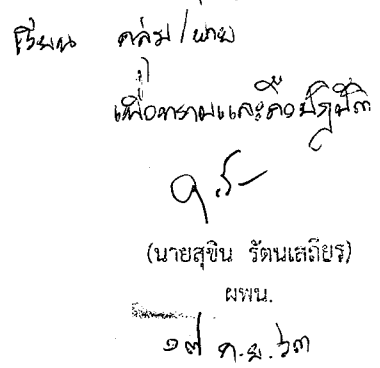 เรียน
เพื่อทราบและถือปฏิบัติ
(นายสุขิน รัตนเสถียร)
ผพน.
๑๗ ก.ย. ๖๓